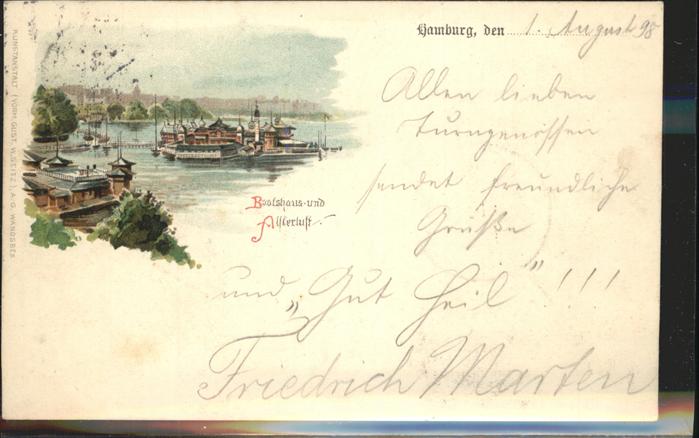 Hamburg, den 1. August 98
Allen lieben
Turngenossen
sendet freundliche
Grüße
und „Gut Heil" !!!
Friedrich Marten
Bootshaus- und
Alsterlust.
KUNSTANSTALT (VORM. GUST. W. SEITZ) A. G. WANDSBEK